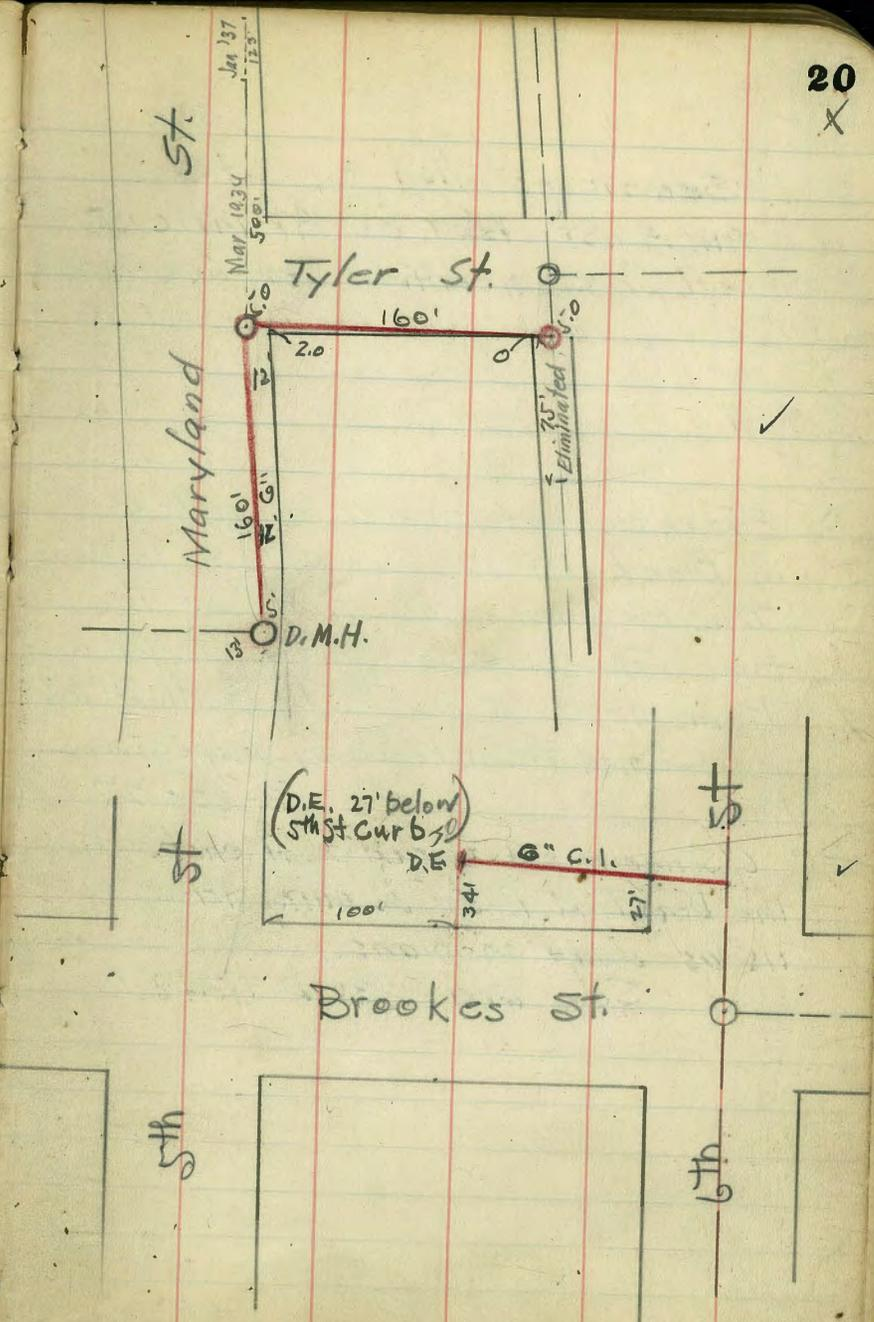 20
x
Jan '37
125'
St.
Mar 1934
500'
Tyler St.
5.0
160'
5.0
2.0
0
75'
Eliminated
Maryland
160'
6"
5.
13.
D.M.H.
(D.E. 27' below
5th St Curb)
D.E.
6" C.I.
St
St
100'
34'
27'
Brookes St.
5th
6th